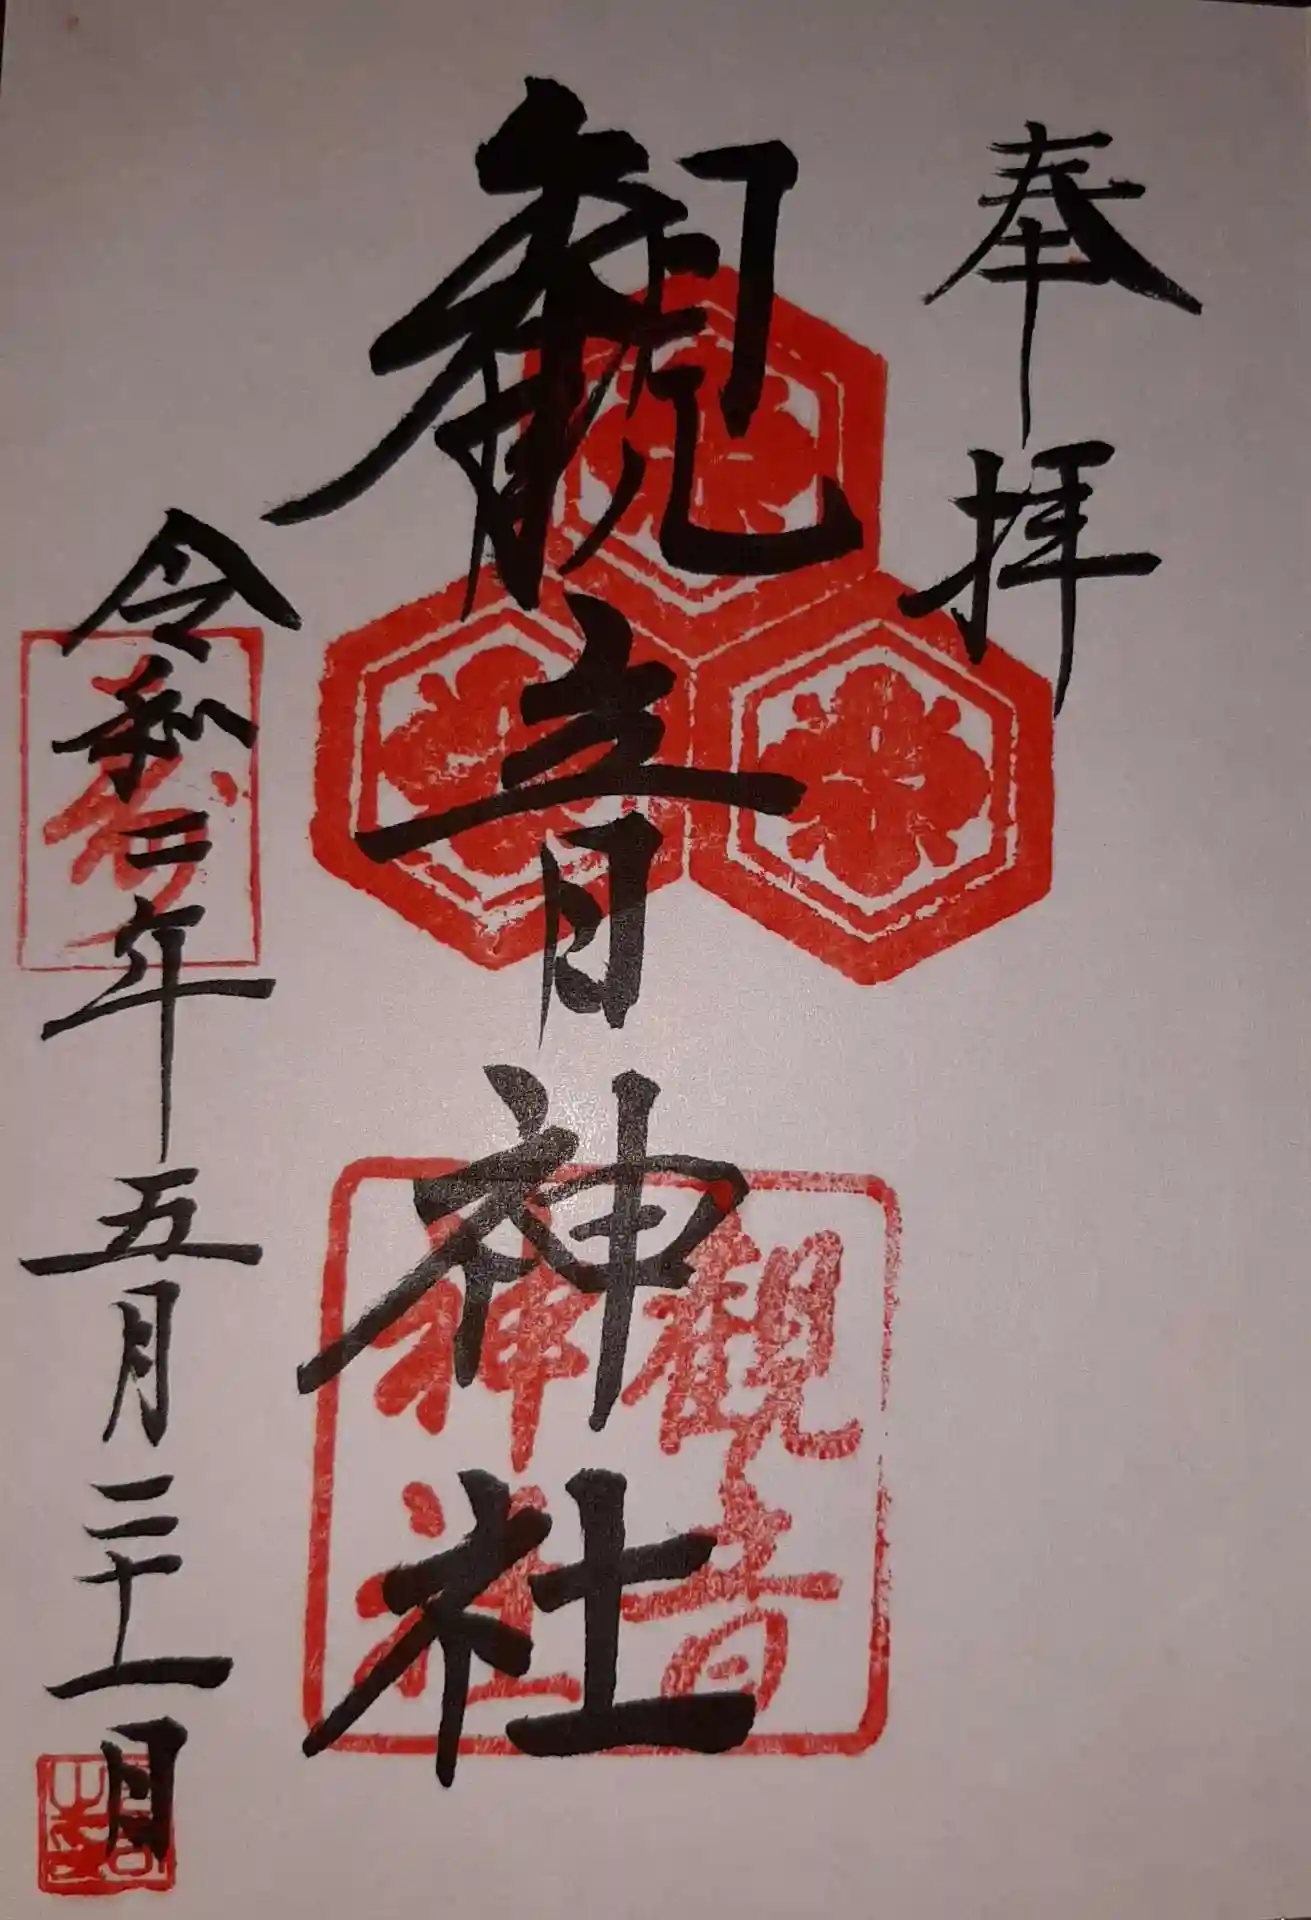 奉拝
観音神社
観音
神社
令和二年五月二十一日